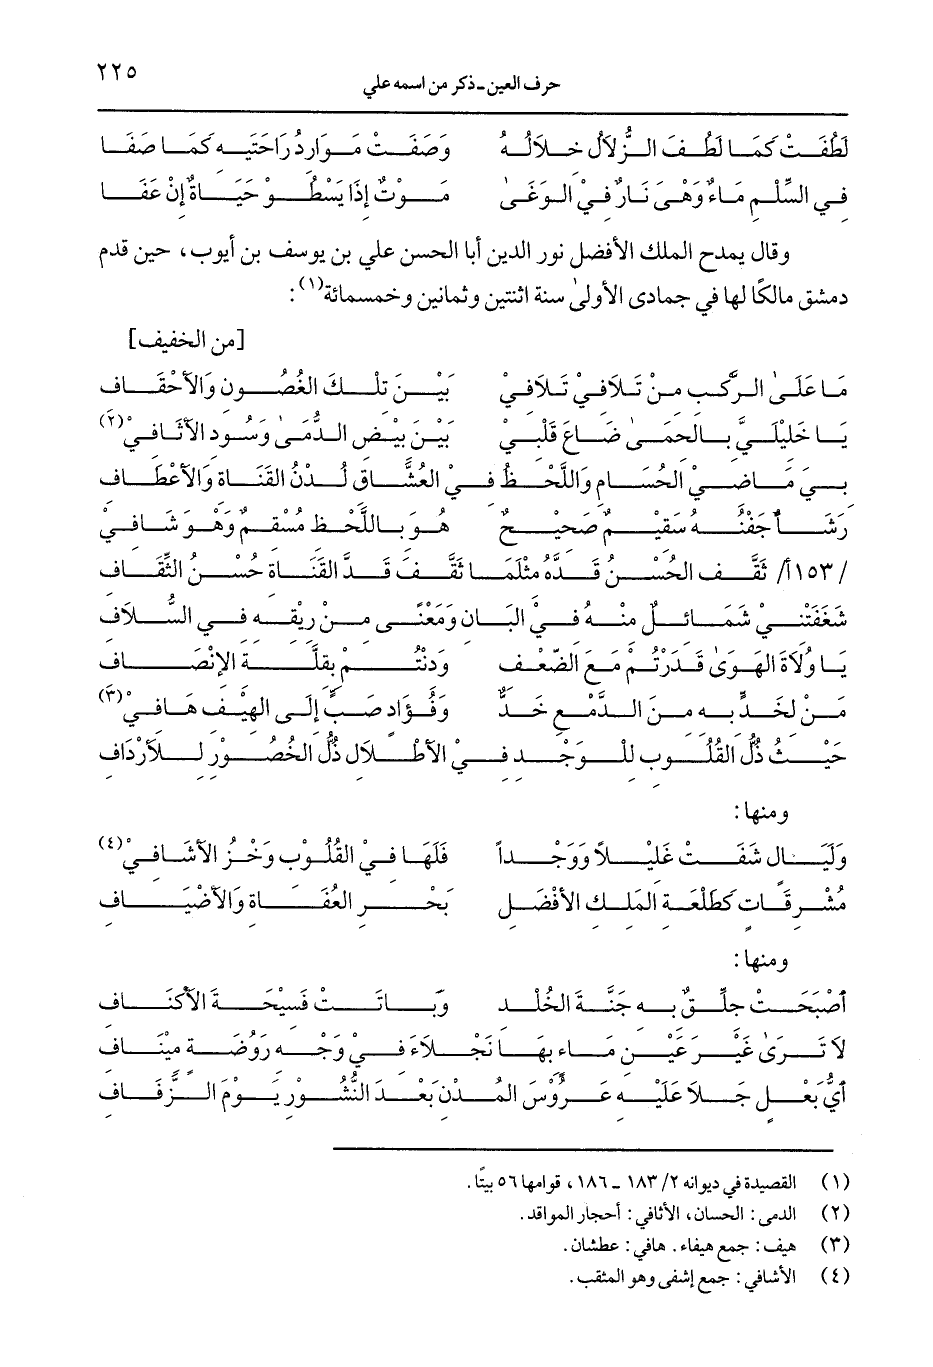 حرف العين ـ ذكر من اسمه علي ٢٢٥
لَطُفَتْ كَمَا لَطُفَ الزُّلاَلُ خِلاَلُهُ وَصَفَتْ مَوَارِدُ رَاحَتَيْهِ كَمَا صَفَا
فِي السِّلْمِ مَاءٌ وَهْيَ نَارٌ فِيْ الوَغَىٰ مَوْتٌ إِذَا يَسْطُو حَيَاةٌ إِنْ عَفَا
وقال يمدح الملك الأفضل نور الدين أبا الحسن علي بن يوسف بن أيوب، حين قدم
دمشق مالكًا لها في جمادى الأولىٰ سنة اثنتين وثمانين وخمسمائة(١):
[من الخفيف]
مَا عَلَىٰ الرَّكْبِ مِنْ تَلاَفِيْ تَلاَفِيْ بَيْنَ تِلْكَ الغُصُونِ وَالأَحْقَافِ
يَا خَلِيْلَيَّ بِالحِمَىٰ ضَاعَ قَلْبِيْ بَيْنَ بِيْضِ الدُّمَىٰ وَسُودِ الأَثَافِيْ(٢)
بِيَ مَاضِيْ الحُسَامِ وَاللَّحْظُ فِيْ العُشَّاقِ لَدْنُ القَنَاةِ وَالأَعْطَافِ
رَشَأٌ جَفْنُهُ سَقِيْمٌ صَحِيْحٌ هُوَ بِاللَّحْظِ مُسْقِمٌ وَهْوَ شَافِيْ
/١٥٣أ/ ثَقَّفَ الحُسْنُ قَدَّهُ مِثْلَمَا ثَقَّفَ قَدَّ القَنَاةِ حُسْنُ الثِّقَافِ
شَغَفَتْنِيْ شَمَائِلٌ مِنْهُ فِيْ البَانِ وَمَعْنًى مِنْ رِيْقِهِ فِي السُّلاَفِ
يَا وُلاَةَ الهَوَىٰ قَدَرْتُمْ مَعَ الضَّعْفِ وَدِنْتُمْ بِقِلَّةِ الإِنْصَافِ
مَنْ لِخَدٍّ بِهِ مِنَ الدَّمْعِ خَدٌّ وَفُؤَادٍ صَبٍّ إِلَى الهِيْفِ هَافِيْ(٣)
حَيْثُ ذُلُّ القُلُوبِ لِلْوَجْدِ فِيْ الأَطْلاَلِ ذُلُّ الخُصُوْرِ لِلأَرْدَافِ
ومنها:
وَلَيَالٍ شَفَتْ غَلِيْلاً وَوَجْداً فَلَهَا فِيْ القُلُوْبِ وَخْزُ الأَشَافِيْ(٤)
مُشْرِقَاتٍ كَطَلْعَةِ المَلِكِ الأَفْضَلِ بَحْرِ العُفَاةِ وَالأَضْيَافِ
ومنها:
أَصْبَحَتْ جِلِّقٌ بِهِ جَنَّةَ الخُلْدِ وَبَاتَتْ فَسِيْحَةَ الأَكْنَافِ
لاَ تَرَىٰ غَيْرَ عَيْنِ مَاءٍ بِهَا نَجْلاَءَ فِيْ وَجْهِ رَوْضَةٍ مِيْنَافِ
أَيُّ بَعْلٍ جَلاَ عَلَيْهِ عَرُوْسَ المُدْنِ بَعْدَ النُّشُوْزِ يَوْمَ الزِّفَافِ
(١) القصيدة في ديوانه ٢/ ١٨٣ ـ ١٨٦، قوامها ٥٦ بيتًا.
(٢) الدمى: الحسان، الأثافي: أحجار المواقد.
(٣) هيف: جمع هيفاء. هافي: عطشان.
(٤) الأشافي: جمع إشفى وهو المثقب.